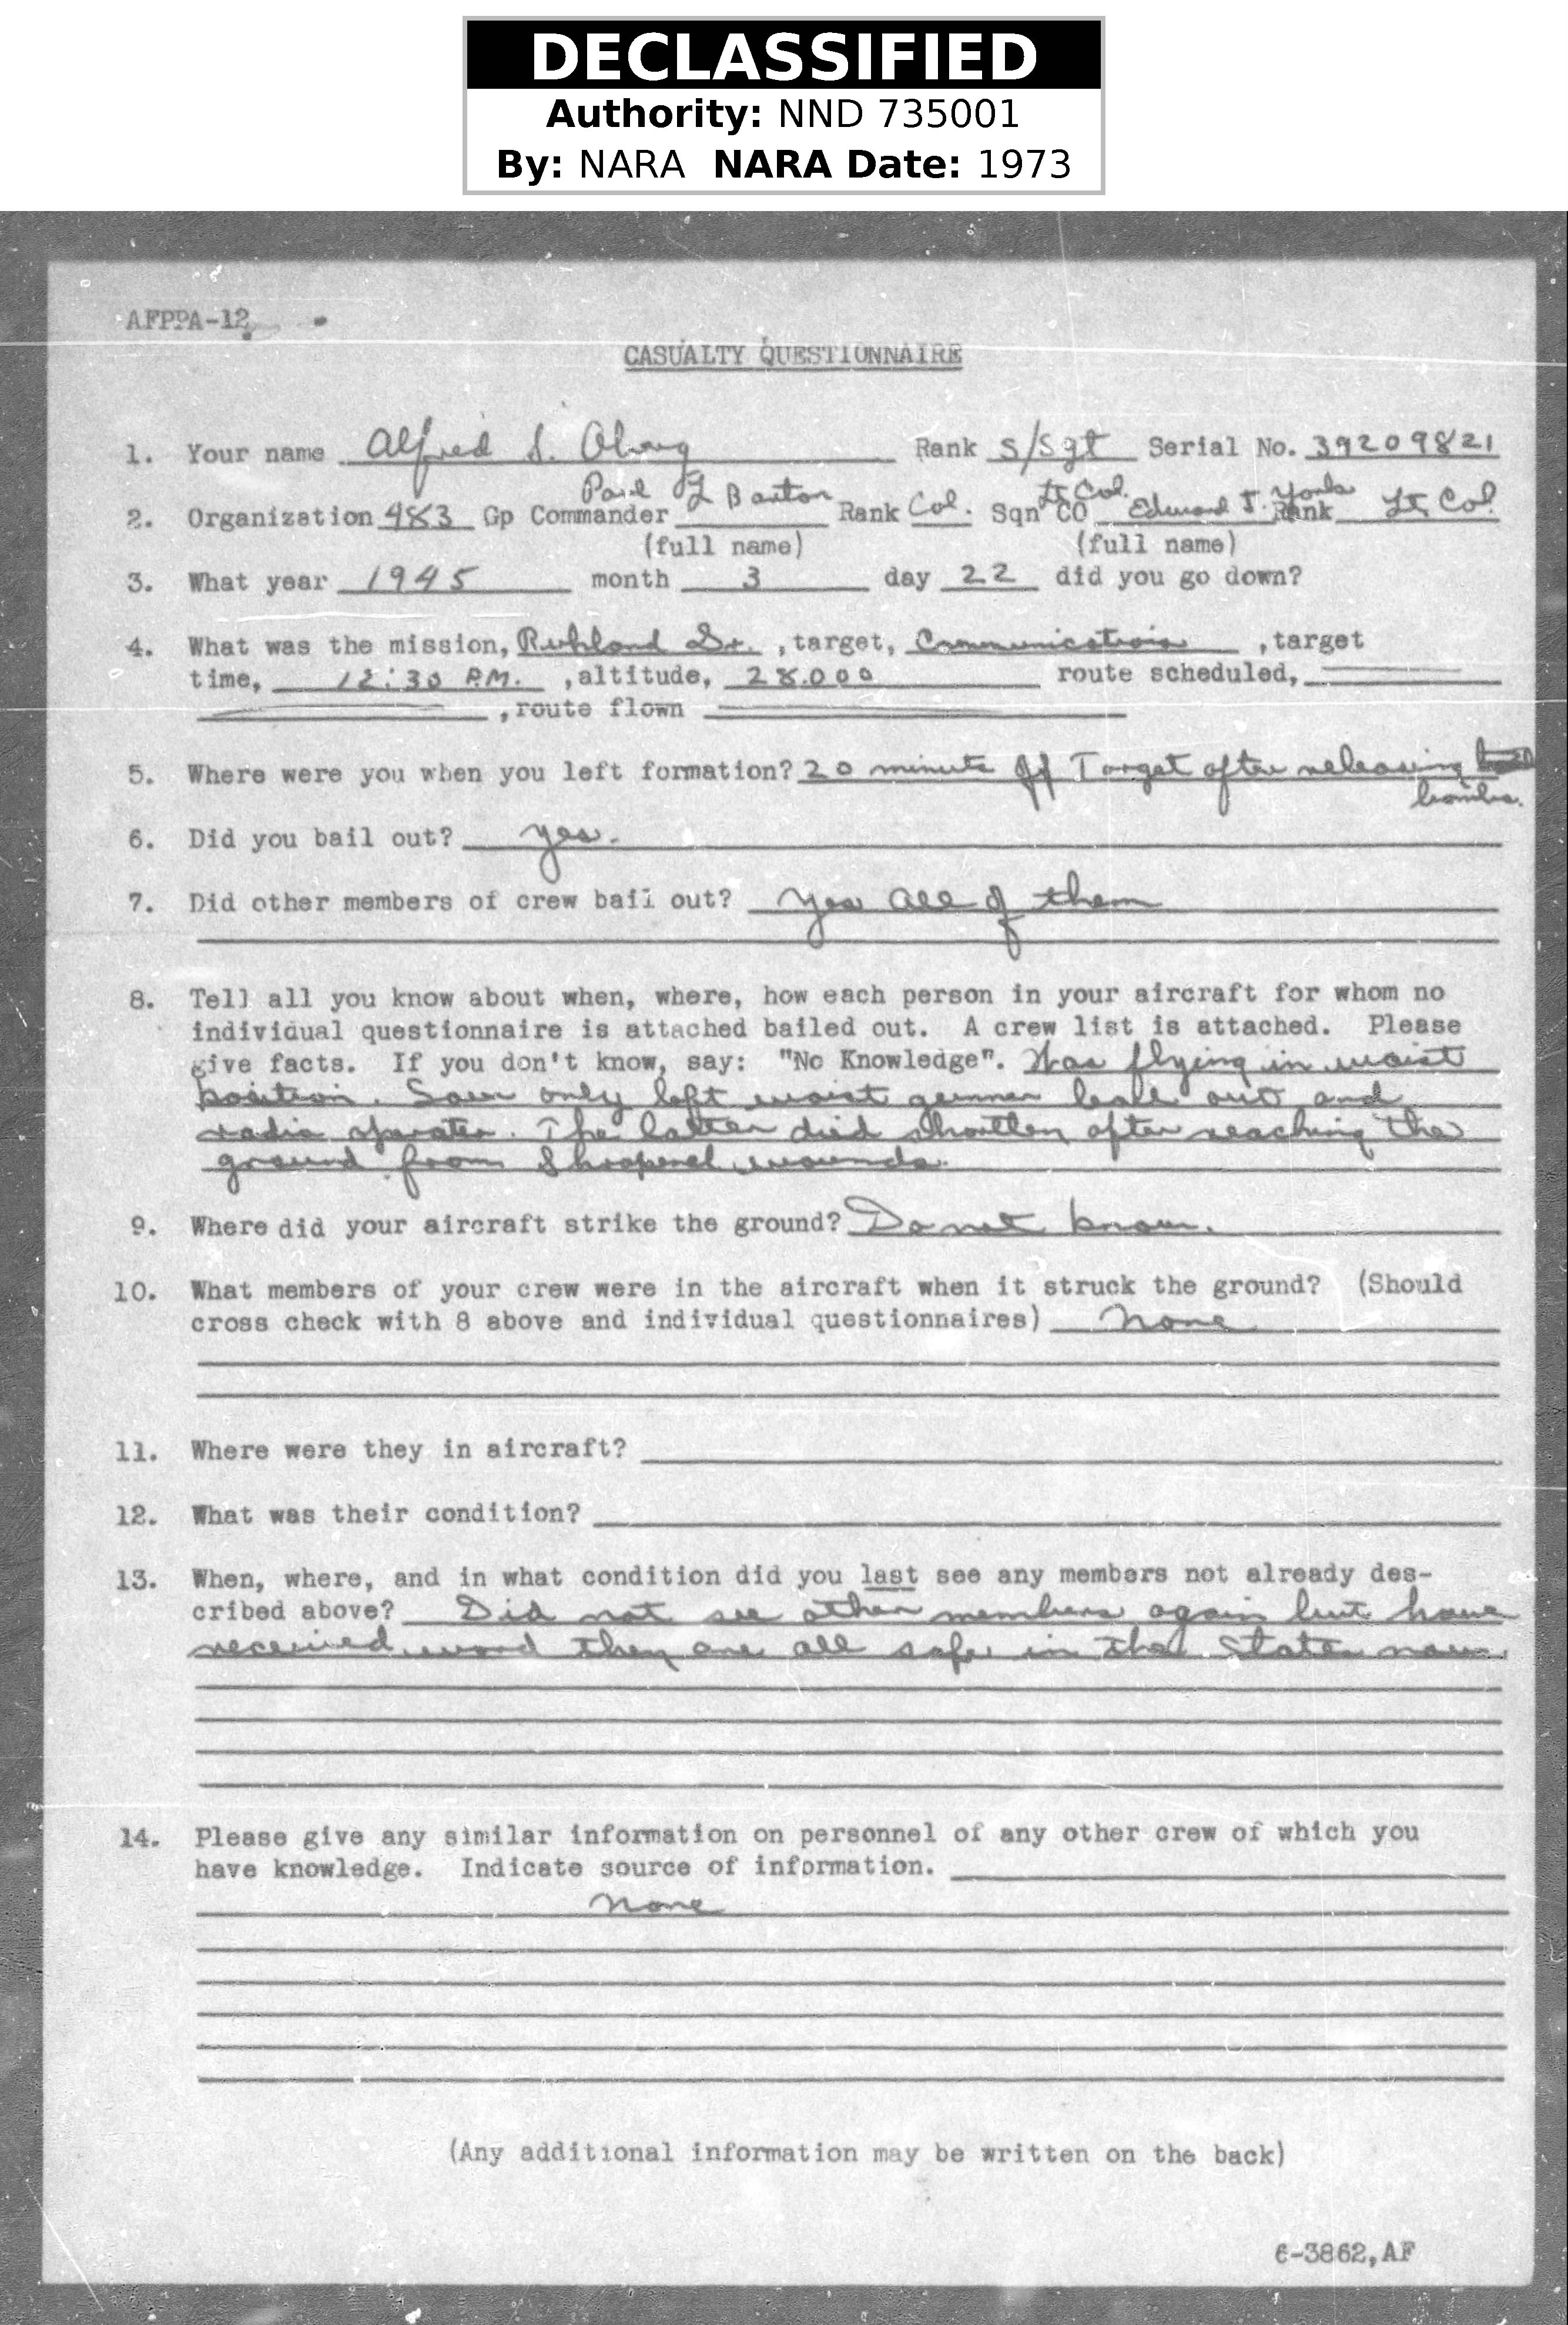 DECLASSIFIED
Authority: NND 735001
By: NARA NARA Date: 1973
AFPPA-12
CASUALTY QUESTIONNAIRE
1. Your name Alfred S. Oberg Rank S/Sgt Serial No. 39209821
Paul L Barton Lt Col. York
2. Organization 483 Gp Commander Rank Col. Sqn CO Edward J. Rank Lt Col.
(full name) (full name)
3. What year 1945 month 3 day 22 did you go down?
4. What was the mission, Ruhland Gr. , target, Communications , target
time, 12:30 P.M. , altitude, 28.000 route scheduled,
, route flown
5. Where were you when you left formation? 20 minute off Target after releasing
bombs.
6. Did you bail out? yes.
7. Did other members of crew bail out? Yes all of them
8. Tell all you know about when, where, how each person in your aircraft for whom no
individual questionnaire is attached bailed out. A crew list is attached. Please
give facts. If you don't know, say: "No Knowledge". Was flying in waist
position. Saw only left waist gunner bale out and
radio operator. The latter died shortley after reaching the
ground from Shrapenel wounds.
9. Where did your aircraft strike the ground? Do not know.
10. What members of your crew were in the aircraft when it struck the ground? (Should
cross check with 8 above and individual questionnaires) None
11. Where were they in aircraft?
12. What was their condition?
13. When, where, and in what condition did you last see any members not already des-
cribed above? Did not see other members again but have
received word they are all safe in the States now.
14. Please give any similar information on personnel of any other crew of which you
have knowledge. Indicate source of information.
None
(Any additional information may be written on the back)
6-3862,AF